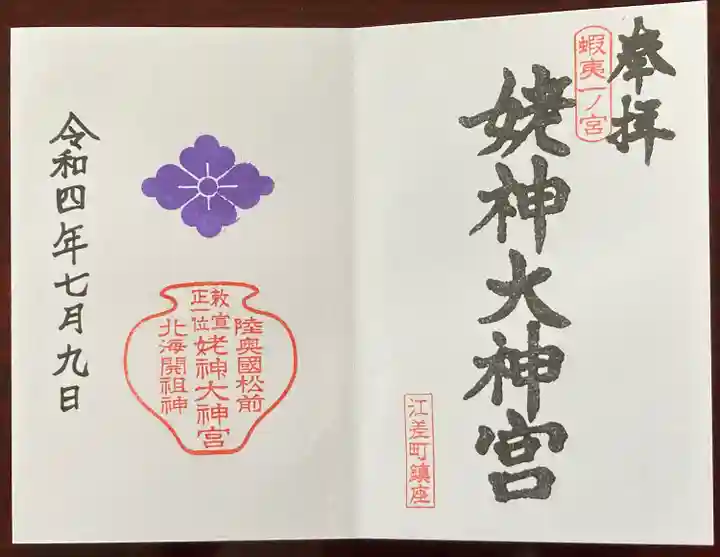 奉拝
蝦夷一ノ宮
姥神大神宮
江差町鎮座
陸奥國松前
敕宣
正一位
姥神大神宮
北海開祖神
令和四年七月九日